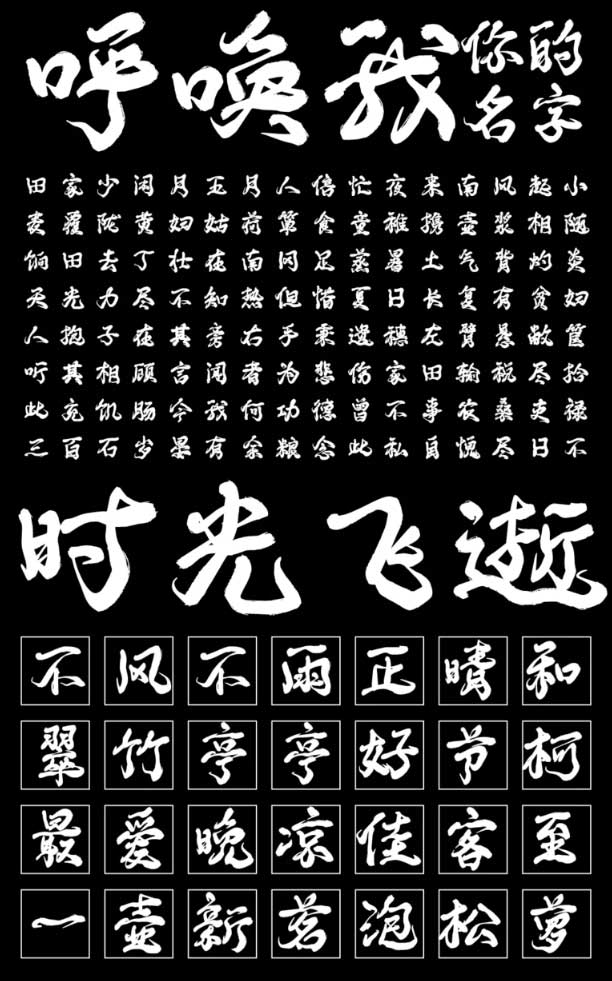 呼唤我你的名字
田家少闲月五月人倍忙夜来南风起小
麦覆陇黄妇姑荷箪食童稚携壶浆相随
饷田去丁壮在南冈足蒸暑土气背灼炎
天光力尽不知热但惜夏日长复有贫妇
人抱子在其旁右手秉遗穗左臂悬敝筐
听其相顾言闻者为悲伤家田输税尽拾
此充饥肠今我何功德曾不事农桑吏禄
三百石岁晏有余粮念此私自愧尽日不
时光飞逝
不风不雨正晴和
翠竹亭亭好节柯
最爱晚凉佳客至
一壶新茗泡松萝